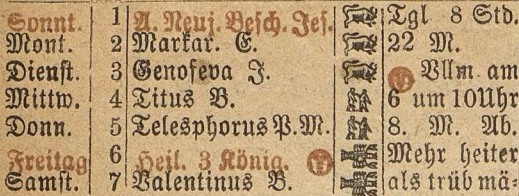 Sonnt. 1 A. Neuj. Besch. Jes. Tgl 8 Std.
Mont. 2 Markar. E. 22 M.
Dienst. 3 Genofeva J. Vllm. am
Mittw. 4 Titus B. 6 um 10Uhr
Donn. 5 Telesphorus P. M. 8. M. Ab.
Freitag 6 Heil. 3 König. Mehr heiter
Samst. 7 Valentinus B. als trüb mä-